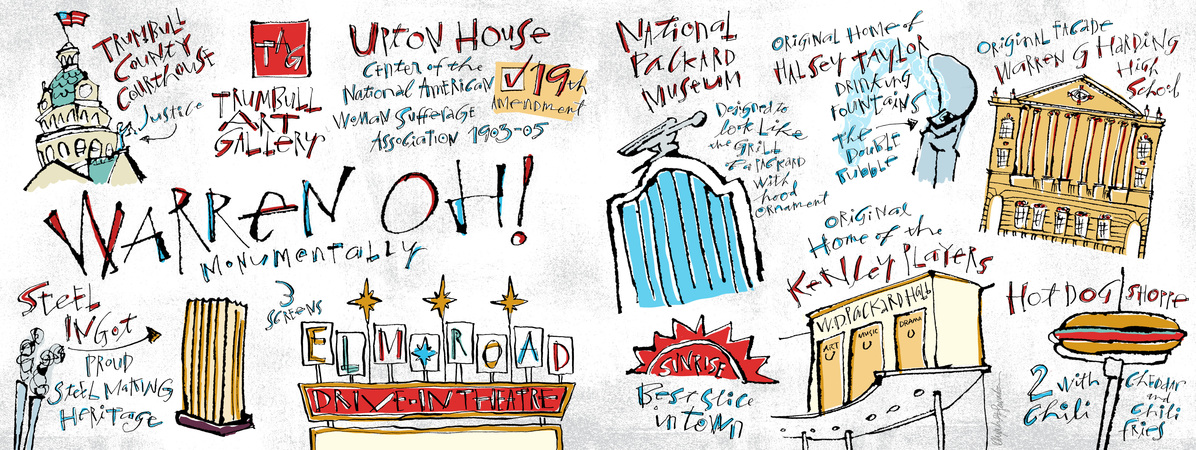 TRUMBULL
COUNTY
COURTHOUSE
Justice
TAG
TRUMBULL
ART
GALLERY
UPTON HOUSE
Center of the
National American
Woman Sufferage
Association 1903-05
19th
Amendment
WARREN OH!
Monumentally
STEEL
INGOT
PROUD
STEEL MAKING
HERITAGE
3
SCREENS
ELM ROAD
DRIVE-IN THEATRE
NATIONAL
PACKARD
MUSEUM
Designed to
look like
the GRILL
of a PACKARD
with
hood
ornament
ORIGINAL HOME of
HALSEY TAYLOR
DRINKING
FOUNTAINS
the
DOUBLE
BUBBLE
ORIGINAL FACADE
WARREN G HARDING
High
School
ORIGINAL
Home of the
KENLEY PLAYERS
W.D. PACKARD HALL
ART
MUSIC
DRAMA
SUNRISE
Best Slice
in town
HOT DOG SHOPPE
2 with
chili
Cheddar
and
chili
fries